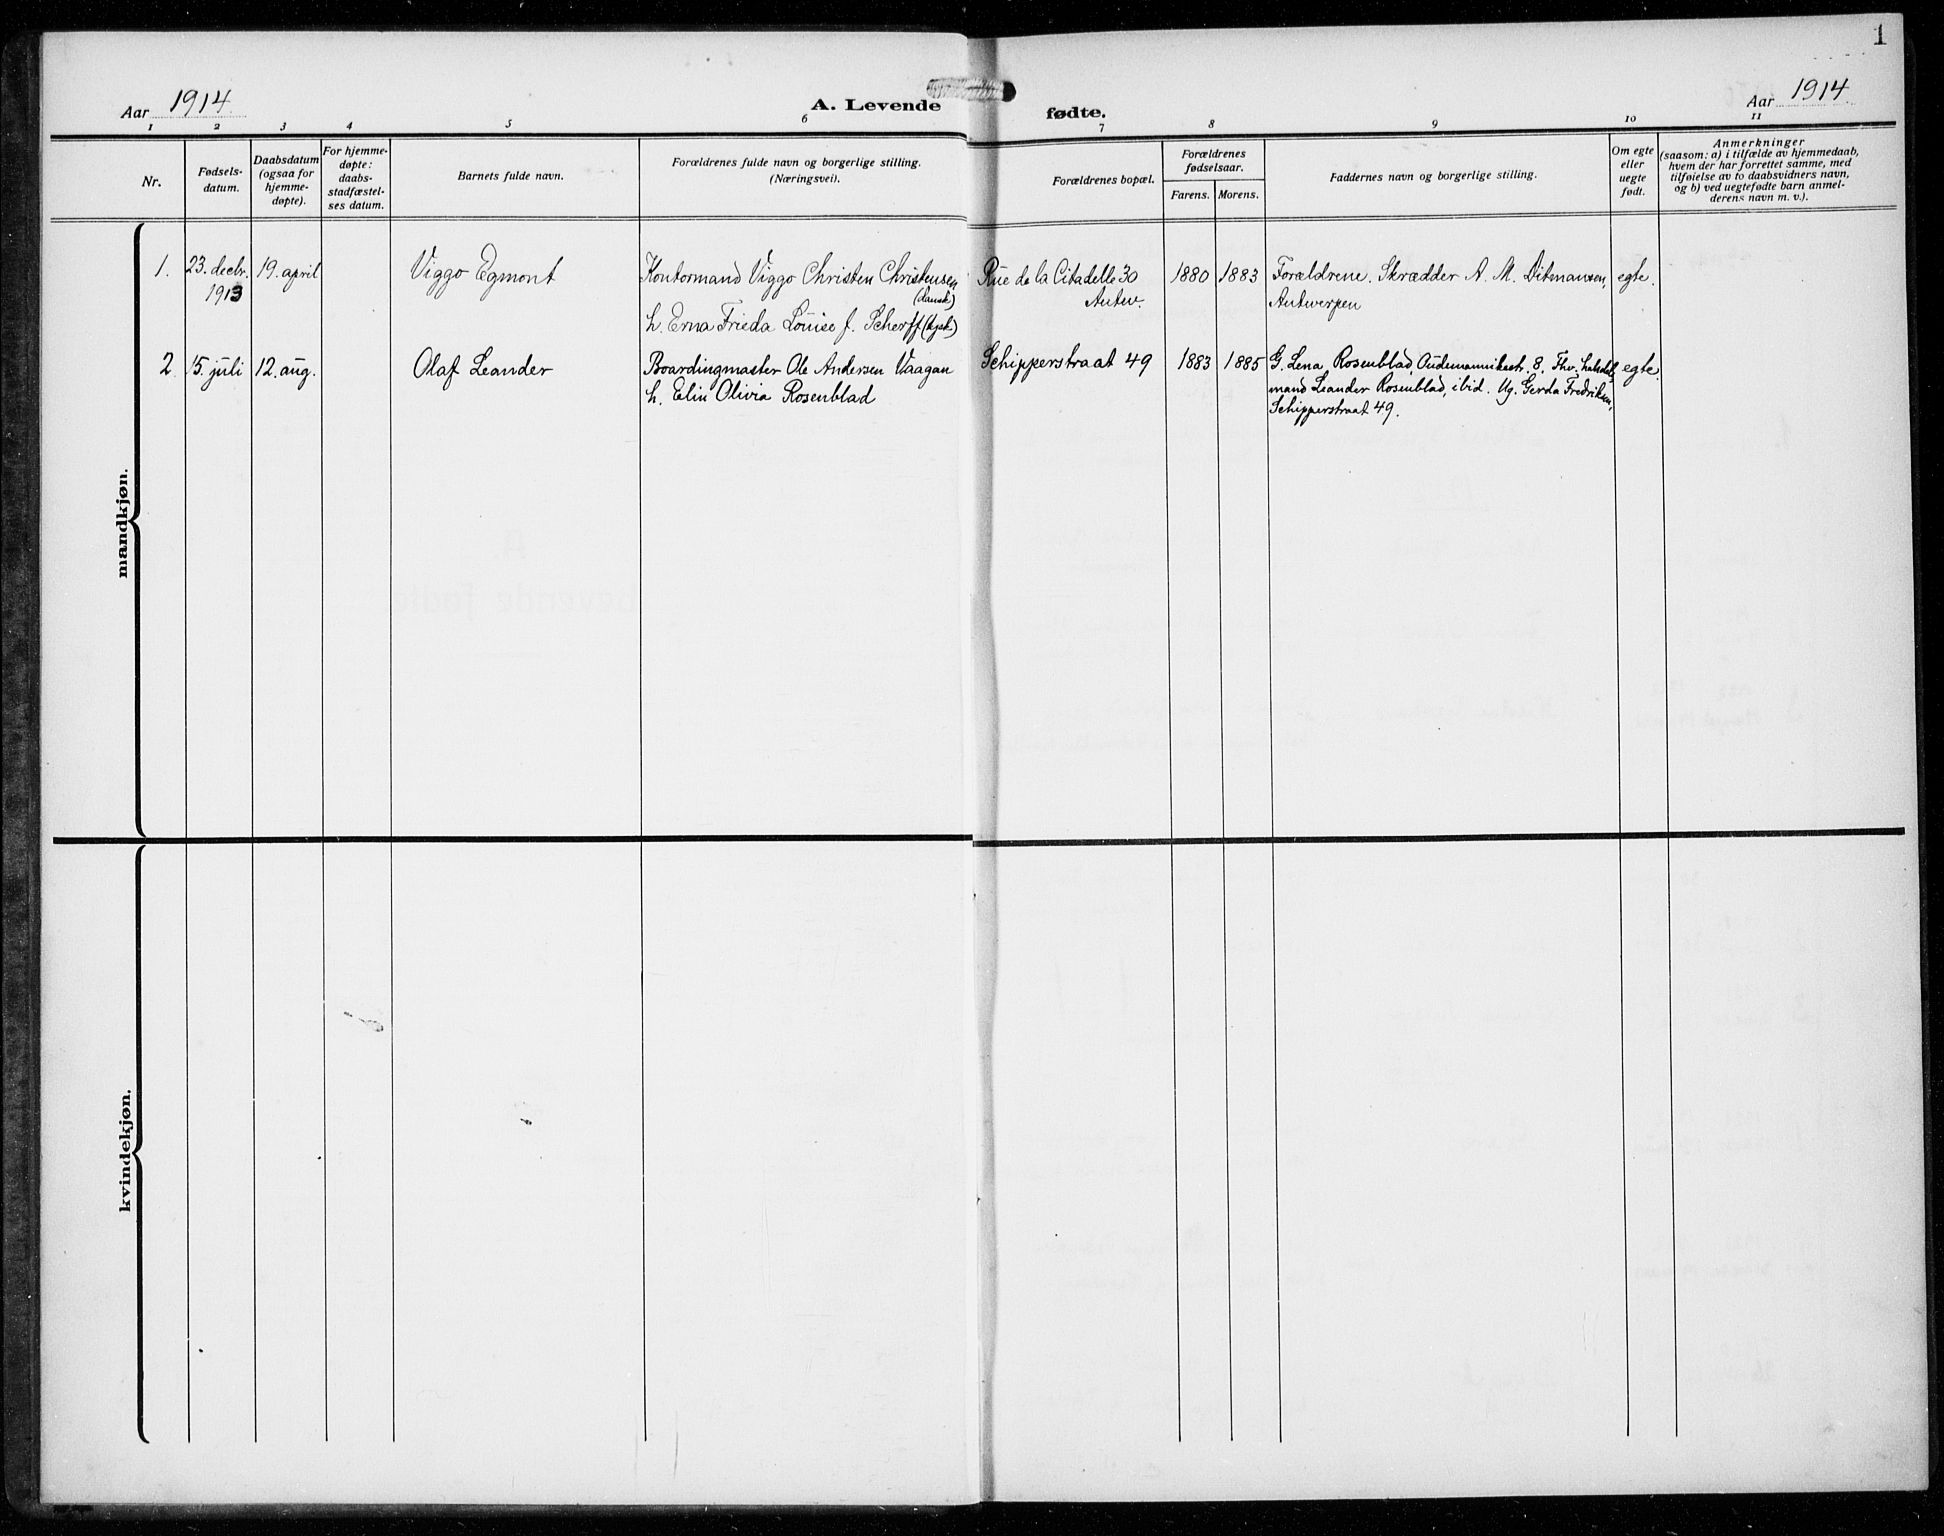 1
Aar 1914
A. Levende fødte.
Aar 1914
1 2 3 4 5 6 7 8 9 10 11
Nr.
Fødsels-
datum.
Daabsdatum
(ogsaa for
hjemme-
døpte).
For hjemme-
døpte:
daabs-
stadfæstel-
ses datum.
Barnets fulde navn.
Forældrenes fulde navn og borgerlige stilling.
(Næringsvei).
Forældrenes bopæl.
Forældrenes
fødselsaar.
Farens. Morens.
Faddernes navn og borgerlige stilling.
Om egte
eller
uegte
født.
Anmerkninger
(saasom: a) i tilfælde av hjemmedaab,
hvem der har forrettet samme, med
tilføielse av to daabsvidners navn,
og b) ved uegtefødte barn anmel-
derens navn m. v.).
mandkjøn.
1. 23. decbr. 19. april Viggo Egmont Kontormand Viggo Christen Christensen Rue de la Citadelle 30 1880 1883 Forældrene. Skrædder A. M. Ditmansen, egte.
1913 (dansk) Antw. Antwerpen
h. Erna Frieda Louise f. Scherff (tysk)
2 15. juli 12. aug. Olaf Leander Boardingmaster Ole Andersen Vaagan Schipperstraat 49 1883 1885 G. Lena Rosenblad, 8. Fhv. egte.
h. Elin Olivia Rosenblad mand Leander Rosenblad, ibid. Ug. Gerda Fredriksen,
Schipperstraat 49.
kvindekjøn.